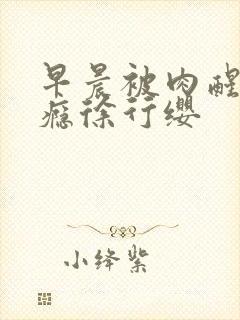 早晨被肉醒
瘾徐行缨
小绛紫